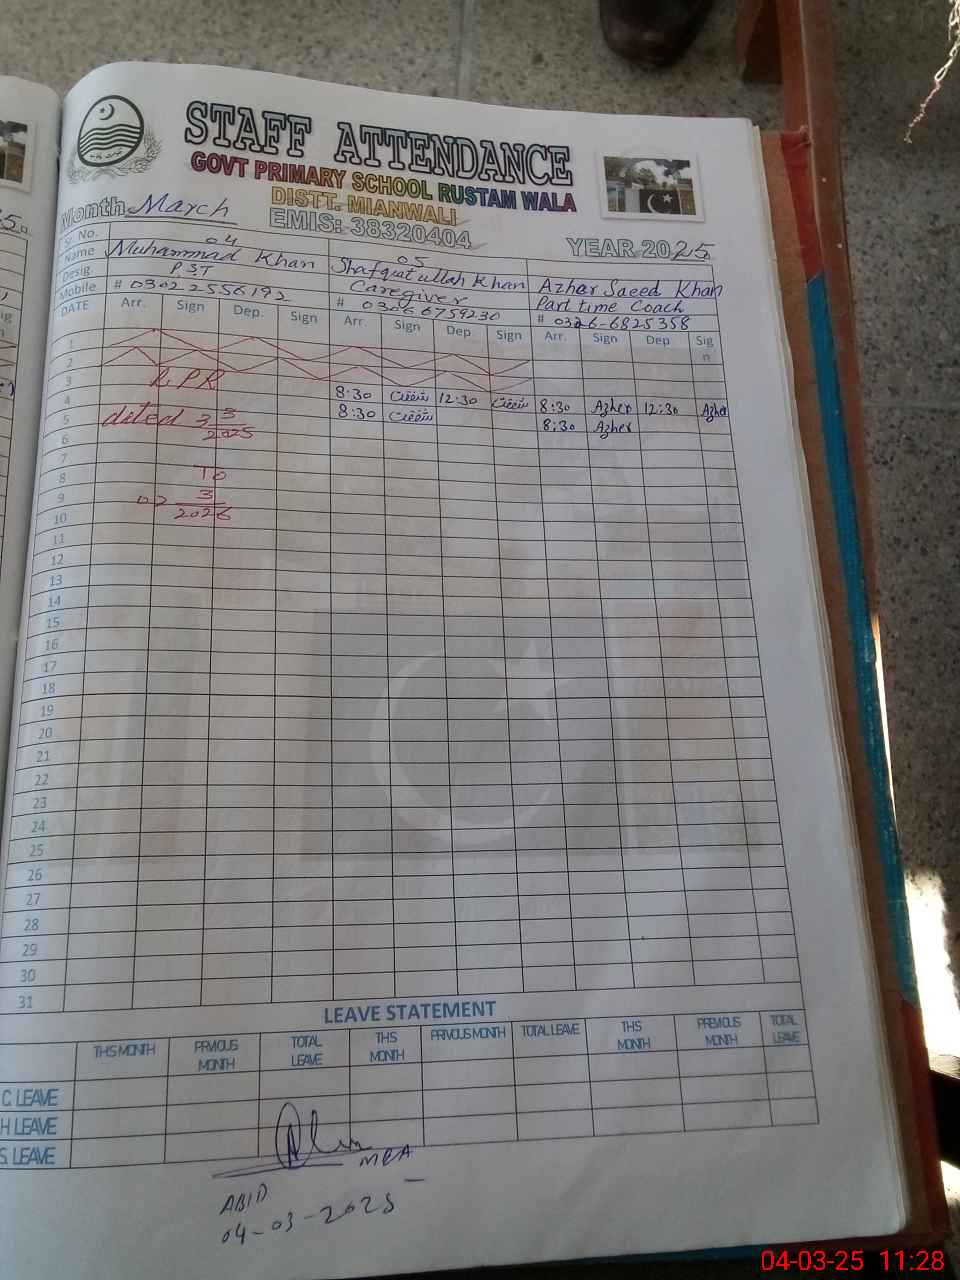 STAFF ATTENDANCE
GOVT PRIMARY SCHOOL RUSTAM WALA
DISTT. MIANWALI
EMIS: 38320404
Month March YEAR 2025
Sr. No. 04 05
Name Muhammad Khan Shafqat ullah Khan Azhar Saeed Khan
Desig. PST Caregiver Part time Coach
Mobile # 0302 2556192 # 03066759230 # 0326-6825358
DATE Arr. Sign Dep. Sign Arr. Sign Dep. Sign Arr. Sign Dep Sig n
1
2
3
4 8:30 شفقت 12:30 شفقت 8:30 Azher 12:30 Azher
5 8:30 شفقت 8:30 Azher
6
7
8
9
10
11
12
13
14
15
16
17
18
19
20
21
22
23
24
25
26
27
28
29
30
31
LPR
dited 3 3
2025
To
02 3
2026
LEAVE STATEMENT
THIS MONTH PRVIOUS MONTH TOTAL LEAVE THIS MONTH PRIVOUS MONTH TOTAL LEAVE THIS MONTH PREVIOUS MONTH TOTAL LEAVE
C. LEAVE
H LEAVE
S. LEAVE
MEA
ABID
04-03-2025
04-03-25 11:28